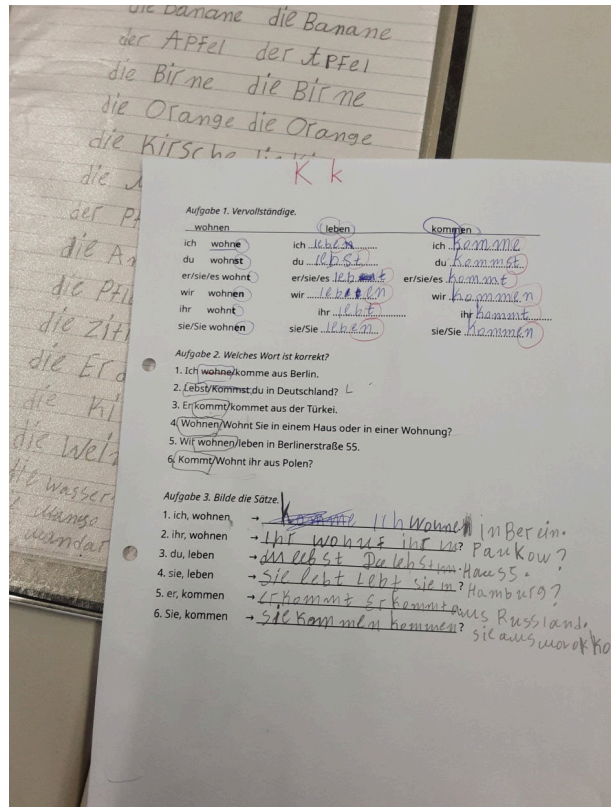 die Banane die Banane
der Apfel der Apfel
die Birne die Birne
die Orange die Orange
die Kirsche
die
der Pf
die A
die Pfl
die Zit
die Erd
die Ki
die Weiz
die wasser
mango
mandar
K k
Aufgabe 1. Vervollständige.
wohnen leben kommen
ich wohne ich leben ich komme
du wohnst du lebst du kommst
er/sie/es wohnt er/sie/es lebt er/sie/es kommt
wir wohnen wir leben wir kommen
ihr wohnt ihr lebt ihr kommt
sie/Sie wohnen sie/Sie leben sie/Sie kommen
Aufgabe 2. Welches Wort ist korrekt?
1. Ich wohne/komme aus Berlin.
2. Lebst/Kommst du in Deutschland? L
3. Er kommt/kommet aus der Türkei.
4. Wohnen/Wohnt Sie in einem Haus oder in einer Wohnung?
5. Wir wohnen/leben in Berlinerstraße 55.
6. Kommt/Wohnt ihr aus Polen?
Aufgabe 3. Bilde die Sätze.
1. ich, wohnen → Ich wohne in Berein.
2. ihr, wohnen → Ihr wohnt ihr in? Paukow?
3. du, leben → du lebst Du lebst im. Haus 5.
4. sie, leben → sie lebt Lebt sie in? Hamburg?
5. er, kommen → er kommt Er kommt aus Russland.
6. Sie, kommen → sie kommen kommen? sie aus marokko